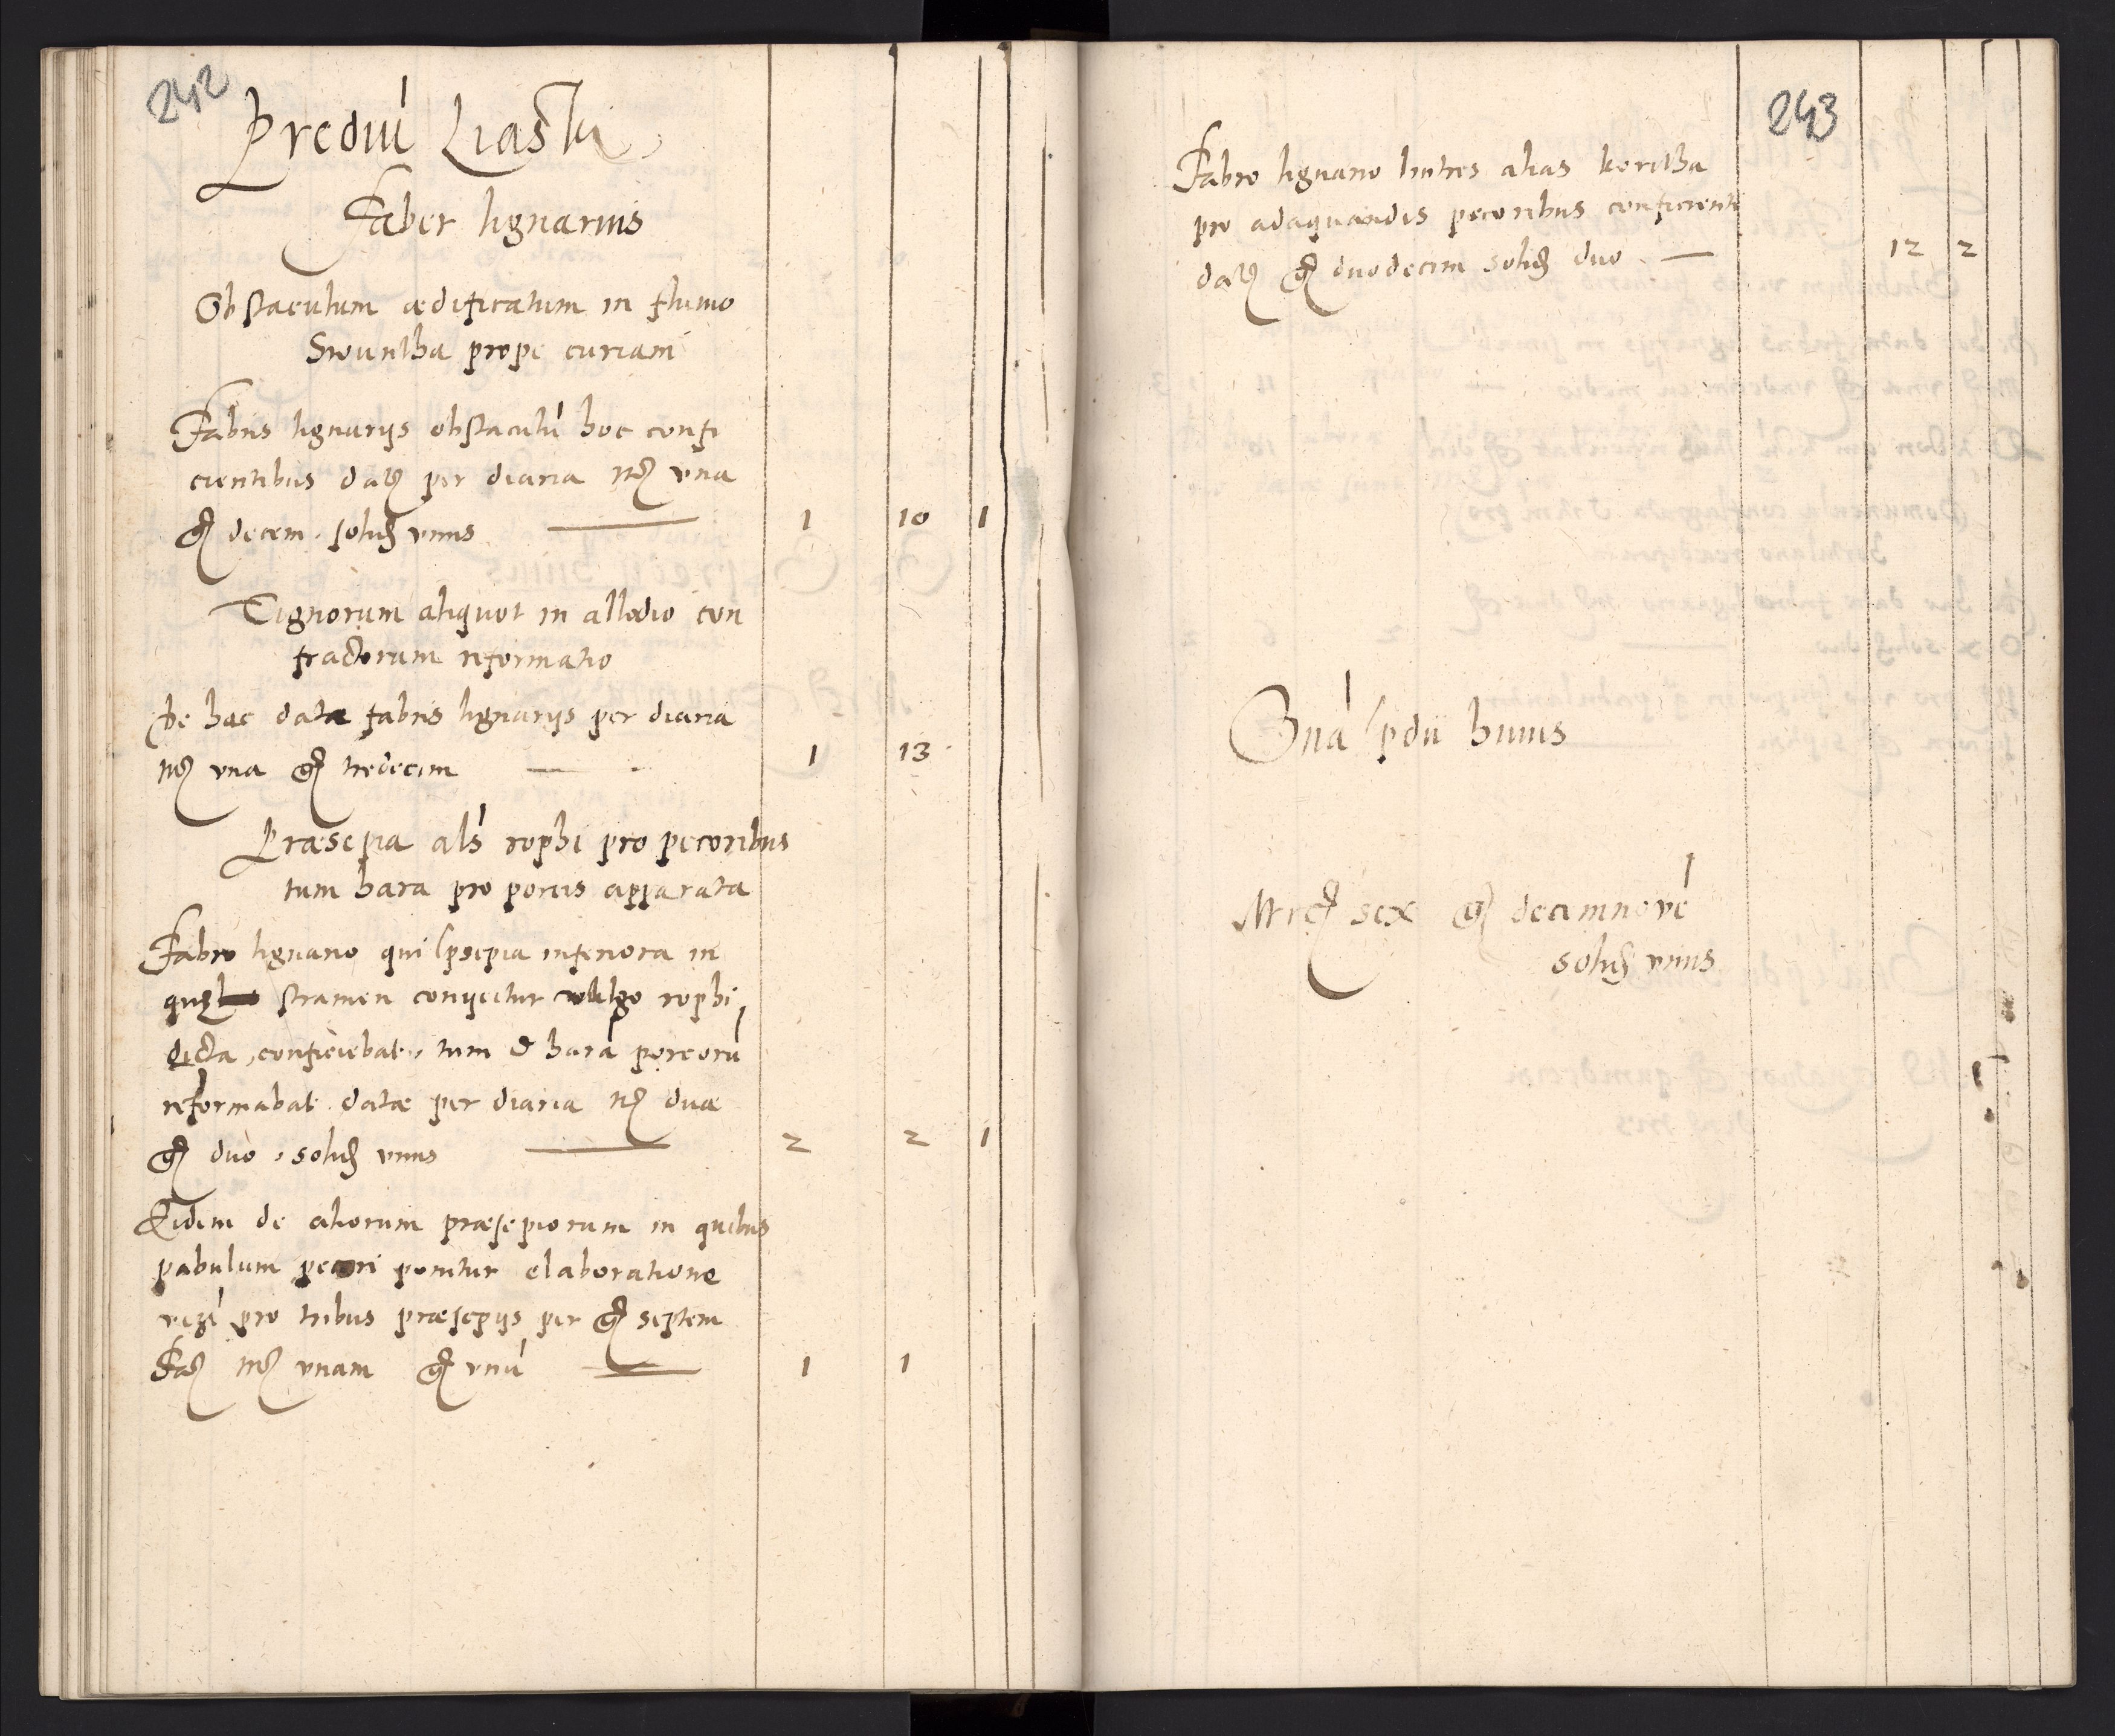 242
Prediu Liaski
Faber lignarius
Obstaculum ædificatum in fluuio
Srountha prope curiam
Fabris lignarijs obstaculu hoc confi
cientibus datæ per diaria mrc vna
gr decem solid vnus 1 10 1
Tignorum aliquot in allodio con
fractorum reformatio
De hac datæ fabris lignarijs per diaria
mrc vna gr tredecim 1 13
Præsepia als rophi pro pecoribus
tum hara pro porcis apparata
Fabro lignario qui psepia inferiora in
quæ stramen conijcitur vulgo rophi
dicta conficiebat, tum & hara porcoru
reformabat datæ per diaria mrc duæ
gr duo solid vnus 2 2 1
Eidem de aliorum præsepiorum in quibus
pabulum pecori ponitur elaboratione
vizi pro tribus præsepijs per gr septem
Fac mrc vnam gr vnu 1 1
243
Fabro lignario lintres alias koritha
pro adaquandis pecoribus conficienti
datæ gr duodecim solid duo 12 2
Sma pdii huius
Mrc sex gr decimnove
solid vnus